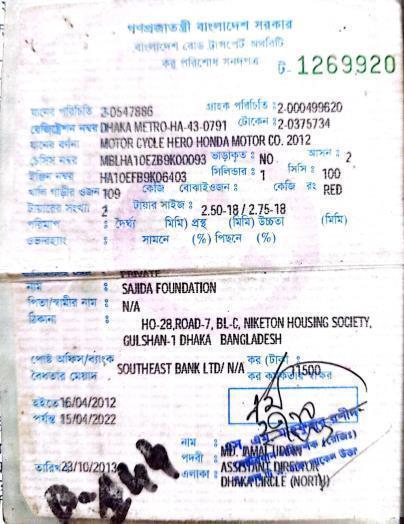 গণপ্রজাতন্ত্রী বাংলাদেশ সরকার
বাংলাদেশ রোড ট্রান্সপোর্ট অথরিটি
কর পরিশোধ সনদপত্র
ট- 1269920
যানের পরিচিতি 2-0547886 গ্রাহক পরিচিতি : 2-000499620
রেজিস্ট্রেশন নম্বর DHAKA METRO-HA-43-0791 টোকেন : 2-0375734
যানের বর্ণনা MOTOR CYCLE HERO HONDA MOTOR CO. 2012
চেসিস নম্বর MBLHA10EZB9K00093 ভাড়াকৃত : NO আসন : 2
ইঞ্জিন নম্বর HA10EFB9K06403 সিলিন্ডার : 1 সিসি : 100
খালি গাড়ীর ওজন 109 কেজি বোঝাইওজন : কেজি রং RED
টায়ারের সংখ্যা 2 টায়ার সাইজ : 2.50-18 / 2.75-18
পরিমাপ : দৈর্ঘ্য (মিমি) প্রস্থ (মিমি) উচ্চতা (মিমি)
ওভারহ্যাং : সামনে (%) পিছনে (%)
PRIVATE
নাম : SAJIDA FOUNDATION
পিতা/স্বামীর নাম : N/A
ঠিকানা : HO-28,ROAD-7, BL-C, NIKETON HOUSING SOCIETY,
GULSHAN-1 DHAKA BANGLADESH
পোষ্ট অফিস/ব্যাংক SOUTHEAST BANK LTD/ N/A কর (টাকা) : 1500
বৈধতার মেয়াদ
হইতে 16/04/2012
পর্যন্ত 15/04/2022
নাম : MD. JAMAL UDDIN
পদবী : ASSISTANT DIRECTOR
তারিখ 23/10/2013 এলাকা : DHAKA CIRCLE (NORTH)